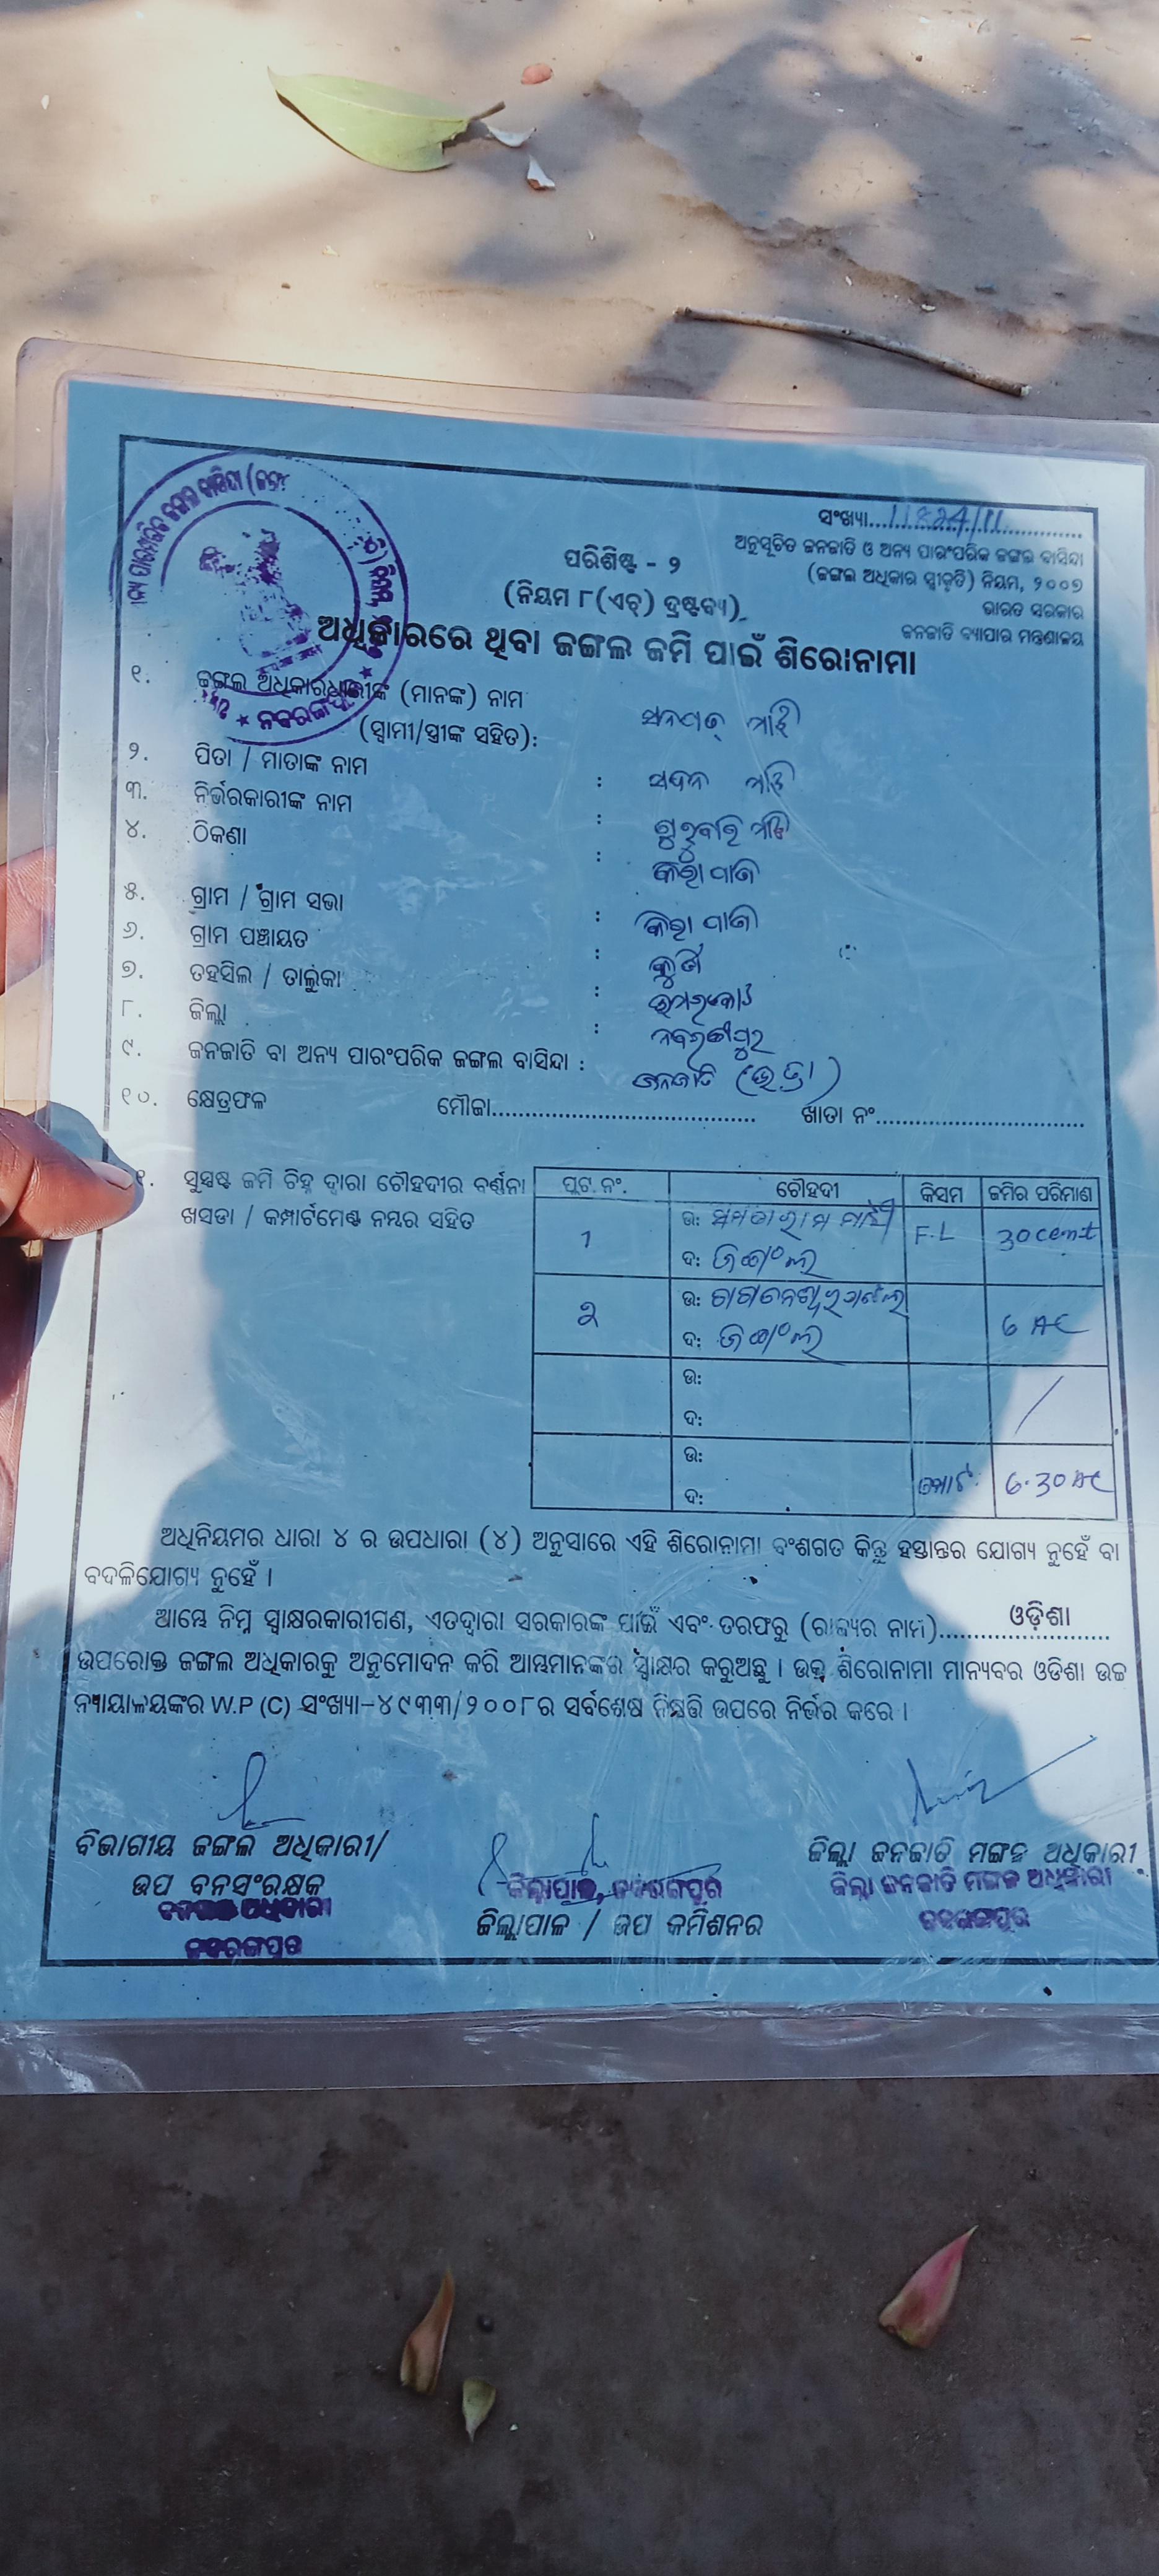 ସଂଖ୍ୟା...11824/11
ଅନୁସୂଚିତ ଜନଜାତି ଓ ଅନ୍ୟ ପାରଂପରିକ ଜଙ୍ଗଲ ବାସିନ୍ଦା
ପରିଶିଷ୍ଟ - ୨
(ଜଙ୍ଗଲ ଅଧିକାର ସ୍ୱୀକୃତି) ନିୟମ, ୨୦୦୭
(ନିୟମ ୮(ଏଚ୍) ଦ୍ରଷ୍ଟବ୍ୟ)
ଭାରତ ସରକାର
ଜନଜାତି ବ୍ୟାପାର ମନ୍ତ୍ରଣାଳୟ
ଅଧିକାରରେ ଥିବା ଜଙ୍ଗଲ ଜମି ପାଇଁ ଶିରୋନାମା
୧. ଜଙ୍ଗଲ ଅଧିକାରଧାରୀଙ୍କ (ମାନଙ୍କ) ନାମ
(ସ୍ୱାମୀ/ସ୍ତ୍ରୀଙ୍କ ସହିତ): ମାଝି
୨. ପିତା / ମାତାଙ୍କ ନାମ : ମାଝି
୩. ନିର୍ଭରକାରୀଙ୍କ ନାମ : ଗୁରୁବାରି ମାଝି
୪. ଠିକଣା :
୫. ଗ୍ରାମ / ଗ୍ରାମ ସଭା :
୬. ଗ୍ରାମ ପଞ୍ଚାୟତ :
୭. ତହସିଲ / ତାଲୁକା : ଉମରକୋଟ
୮. ଜିଲ୍ଲା : ନବରଙ୍ଗପୁର
୯. ଜନଜାତି ବା ଅନ୍ୟ ପାରଂପରିକ ଜଙ୍ଗଲ ବାସିନ୍ଦା : ଜନଜାତି (ଭତ୍ରା)
୧୦. କ୍ଷେତ୍ରଫଳ ମୌଜା........ ଖାତା ନଂ........
୧. ସୁସ୍ପଷ୍ଟ ଜମି ଚିହ୍ନ ଦ୍ୱାରା ଚୌହଦୀର ବର୍ଣ୍ଣନା
ଖସଡା / କମ୍ପାର୍ଟମେଣ୍ଟ ନମ୍ବର ସହିତ
ପ୍ଲଟ.ନଂ. ଚୌହଦୀ କିସମ ଜମିର ପରିମାଣ
1 ଉ: ମାଝି F.L 30 cent
ଦ: ଜଙ୍ଗଲ
୨ ଉ: 6 AC
ଦ: ଜଙ୍ଗଲ
ଉ:
ଦ:
ଉ: ମୋଟ: 6.30 AC
ଦ:
ଅଧିନିୟମର ଧାରା ୪ ର ଉପଧାରା (୪) ଅନୁସାରେ ଏହି ଶିରୋନାମା ବଂଶଗତ କିନ୍ତୁ ହସ୍ତାନ୍ତର ଯୋଗ୍ୟ ନୁହେଁ ବା
ବଦଳିଯୋଗ୍ୟ ନୁହେଁ ।
ଆମ୍ଭେ ନିମ୍ନ ସ୍ୱାକ୍ଷରକାରୀଗଣ, ଏତଦ୍ୱାରା ସରକାରଙ୍କ ପାଇଁ ଏବଂ ତରଫରୁ (ରାଜ୍ୟର ନାମ)........ଓଡ଼ିଶା
ଉପରୋକ୍ତ ଜଙ୍ଗଲ ଅଧିକାରକୁ ଅନୁମୋଦନ କରି ଆମ୍ଭମାନଙ୍କର ସ୍ୱାକ୍ଷର କରୁଅଛୁ । ଉକ୍ତ ଶିରୋନାମା ମାନ୍ୟବର ଓଡିଶା ଉଚ୍ଚ
ନ୍ୟାୟାଳୟଙ୍କର W.P (C) ସଂଖ୍ୟା-୪୯୩୩/୨୦୦୮ର ସର୍ବଶେଷ ନିଷ୍ପତ୍ତି ଉପରେ ନିର୍ଭର କରେ ।
ବିଭାଗୀୟ ଜଙ୍ଗଲ ଅଧିକାରୀ/
ଉପ ବନସଂରକ୍ଷକ
ଅଧିକାରୀ
ନବରଙ୍ଗପୁର
ଜିଲ୍ଲାପାଳ, ନବରଙ୍ଗପୁର
ଜିଲ୍ଲାପାଳ / ଉପ କମିଶନର
ଜିଲ୍ଲା ଜନଜାତି ମଙ୍ଗଳ ଅଧିକାରୀ
ଜିଲ୍ଲା ଜନଜାତି ମଙ୍ଗଳ ଅଧିକାରୀ
ନବରଙ୍ଗପୁର